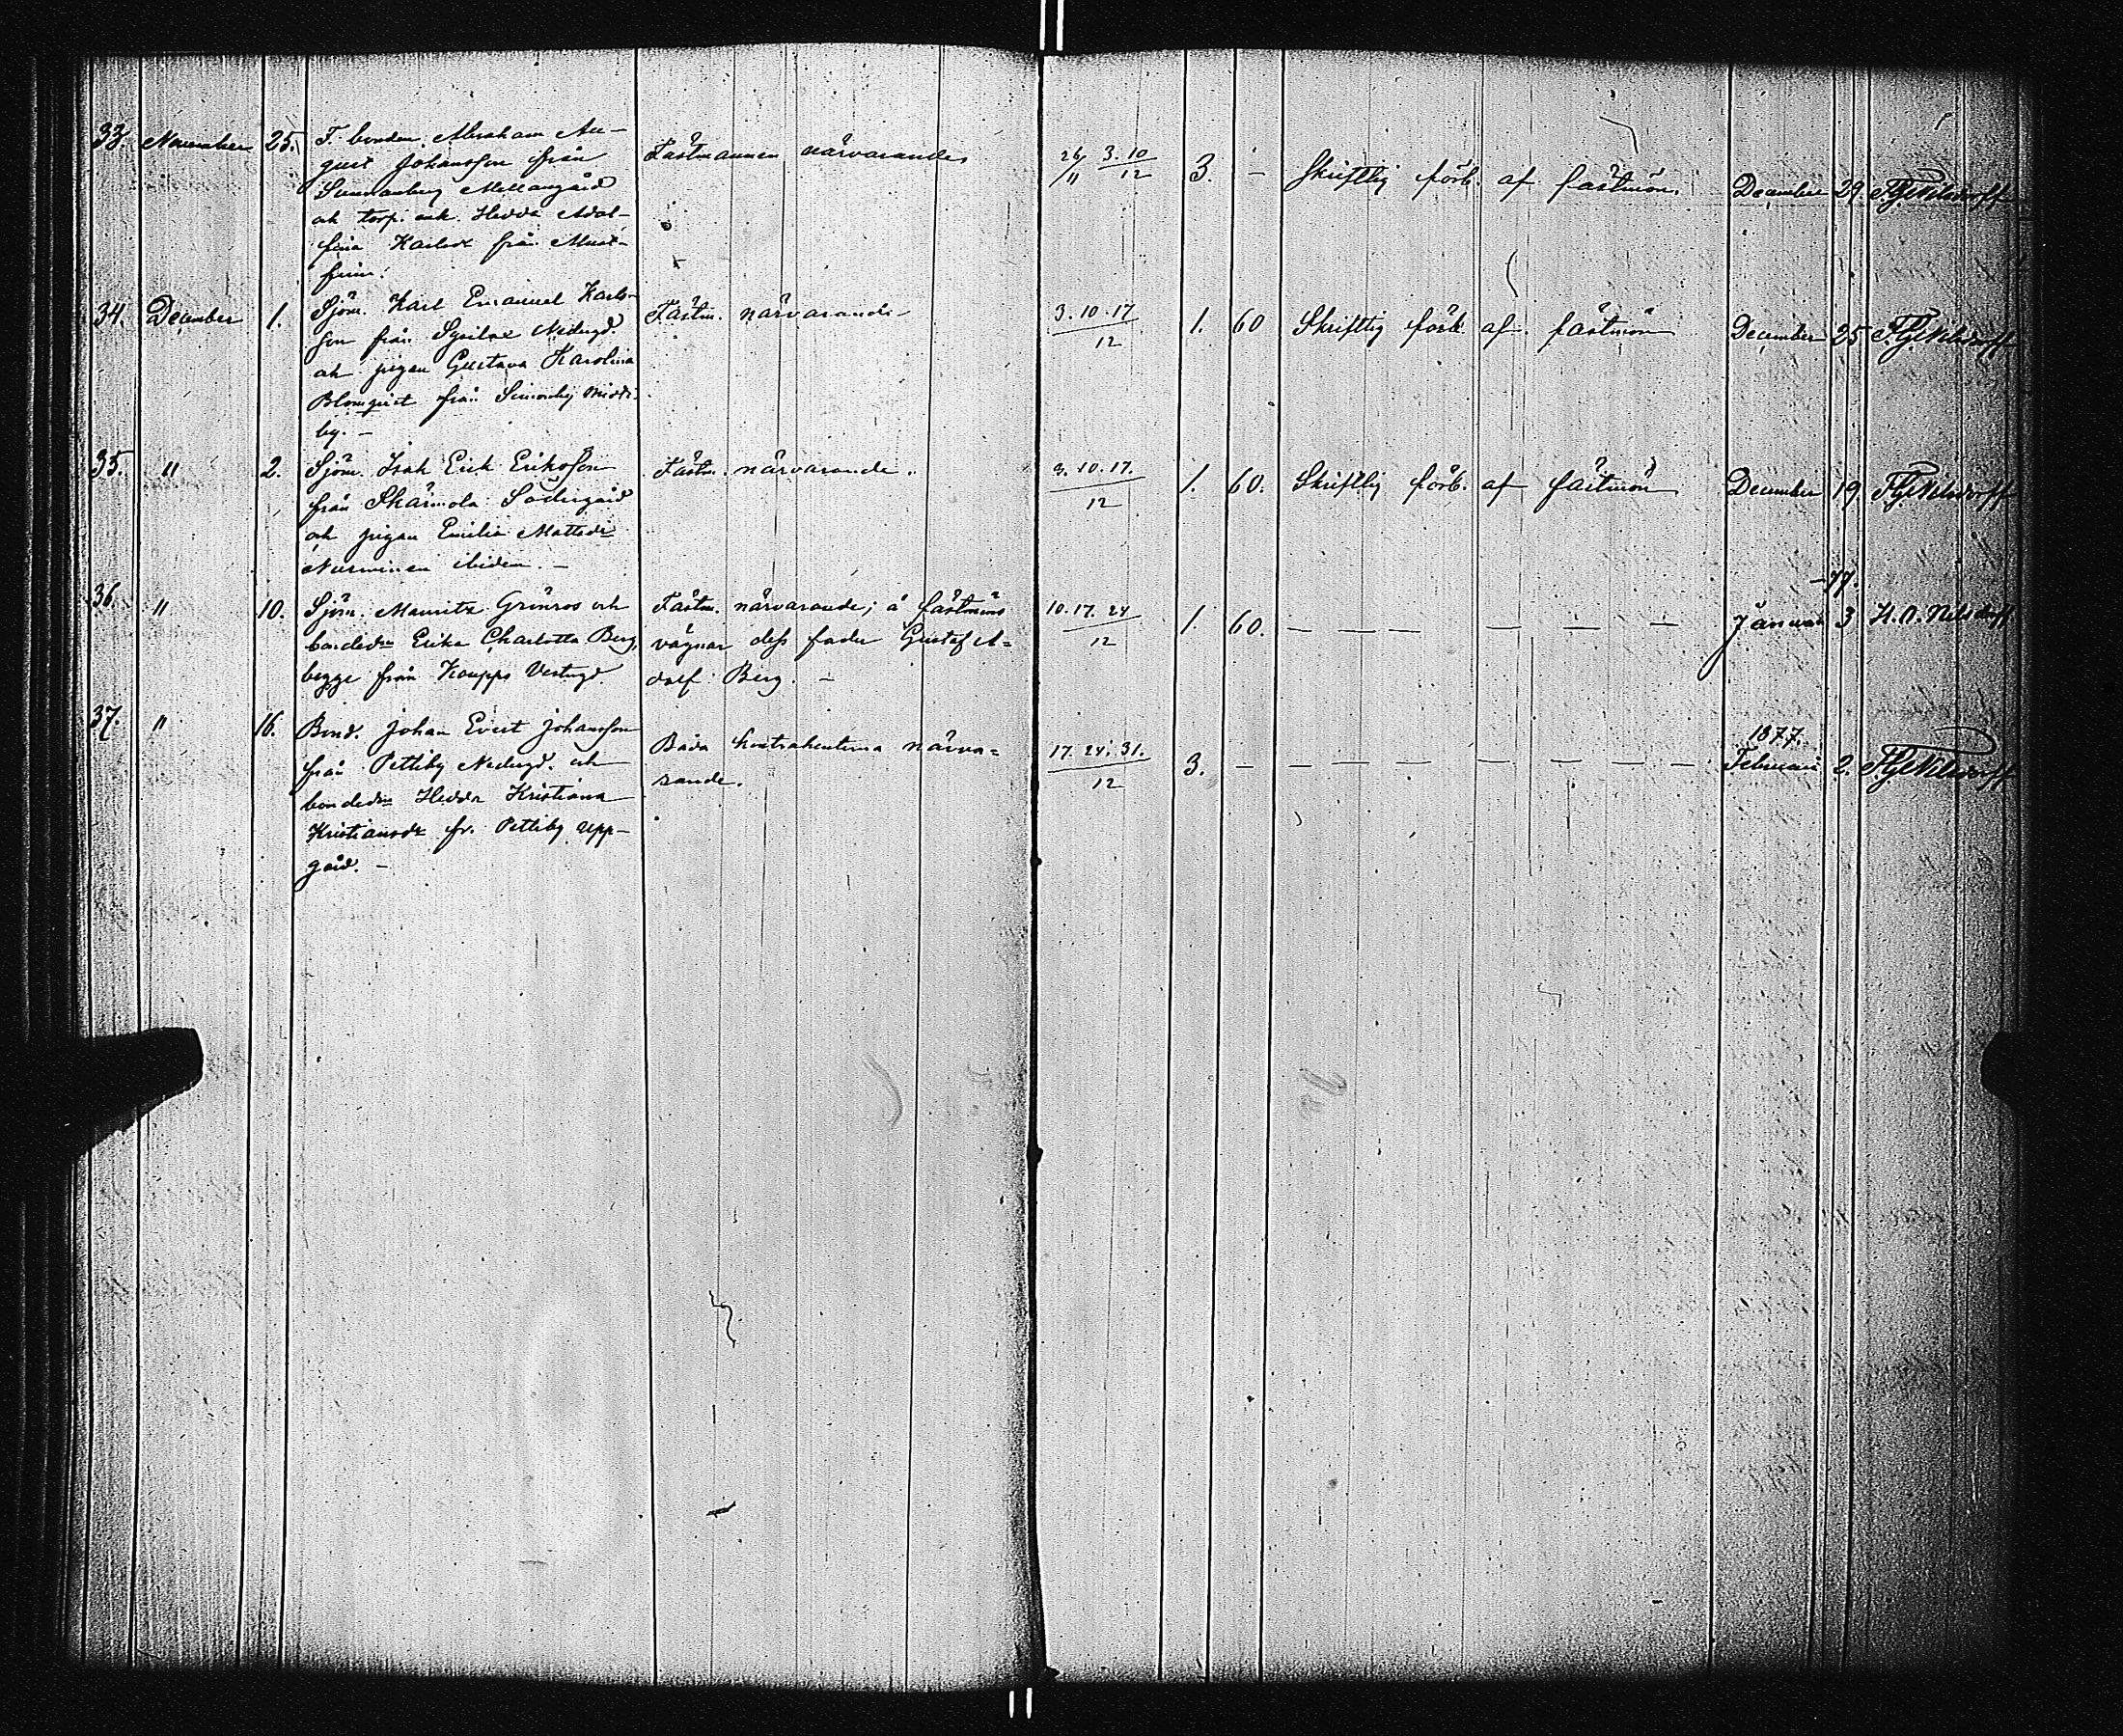 33. November 25. F. bonden Abraham Au-
gust Johansson från
Sunnanberg Mellangård
och torp. enk. Hedda Adol-
fina Karlsdr från Must-
finn.
Fästmannen närvarande
26/11 3.10/12 3. – Skriftlig förb. af fästmön. December 29.
34. December 1. Sjöm. Karl Emanuel Karls-
son från Nedergd.
och pigan Gustava Karolina
Blomqvist från Simonby
by. –
Fästm. närvarande
3.10.17/12 1. 60 Skriftlig förb. af fästmön December 25
35. " 2. Sjöm. Isak Erik Eriksson
från Skärmola Södergård
och pigan Emilia Mattsdr
Nurminen ibidem. –
Fästm. närvarande.
3.10.17./12 1. 60. Skriftlig förb. af fästmön December 19
36. " 10. Sjöm. Mauritz Grönros och
bondedr Erika Charlotta Berg,
begge från Kaupps Vestergd.
Fästm. närvarande; å fästmöns
vägnar dess fader Gustaf A=
dolf Berg. –
10.17.24/12 1. 60. – – – – – –
-77.
Januari 3 Nilsdorff
37. " 16. Bond. Johan Evert Johansson
från Pettiby Nedergd. och
bondedr Hedda Kristiana
Kristiansdr fr. Pettiby Upp-
gård. –
Båda kontrahenterna närva=
rande.
17.24.31./12 3. – – – – – – –
1877.
Februari 2. Nilsdorff